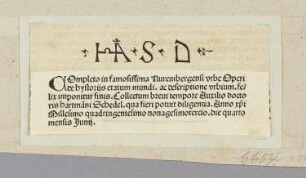 · H A · S · D ·
COmpleto in famosissima Nurembergensi vrbe Operi
de hystorijs etatum mundi. ac descriptione vrbium. fe⸗
lix imponitur finis. Collectum breui tempore Auxilio docto
ris hartmāni Schedel. qua fieri potuit diligentia. Anno xpi
Millesimo quadringentesimo nonagesimotercio. die quarto
mensis Junij.